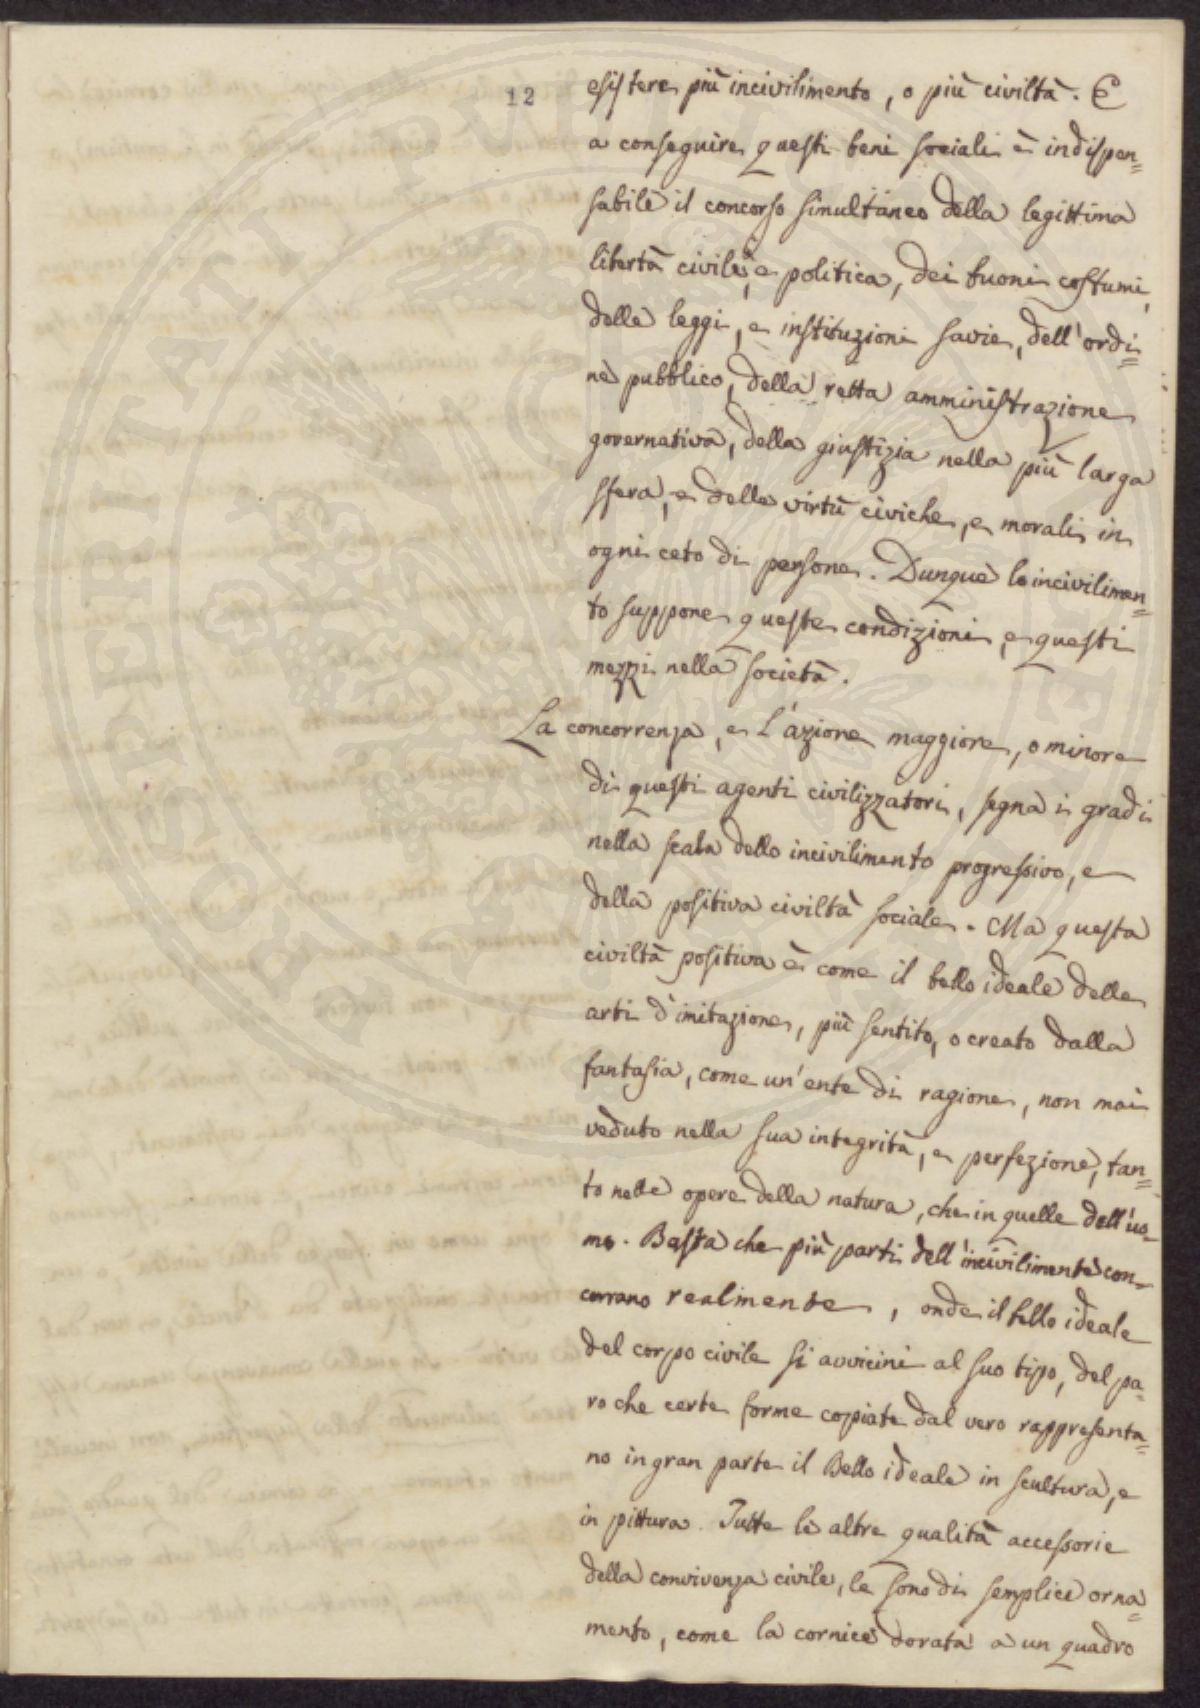 12
esistere più incivilimento, o più civiltà. E
a conseguire questi beni sociali è indispen=
sabile il concorso simultaneo della legittima
libertà civile, e politica, dei buoni costumi,
delle leggi, e instituzioni savie, dell'ordi=
ne pubblico, della retta amministrazione
governativa, della giustizia nella più larga
sfera, e delle virtù civiche, e morali in
ogni ceto di persone. Dunque lo incivilimen=
to suppone queste condizioni, e questi
mezzi nella società.
La concorrenza, e l'azione maggiore, o minore
di questi agenti civilizzatori, segna i gradi
nella scala dello incivilimento progressivo, e
della positiva civiltà sociale. Ma questa
civiltà positiva è come il bello ideale delle
arti d'imitazione, più sentito, o creato dalla
fantasia, come un'ente di ragione, non mai
veduto nella sua integrità, e perfezione, tan=
to nelle opere della natura, che in quelle dell'uo=
mo. Basta che più parti dell'incivilimento con=
corrano realmente, onde il bello ideale
del corpo civile si avvicini al suo tipo, del pa=
ro che certe forme copiate dal vero rappresenta=
no in gran parte il Bello ideale in scultura, e
in pittura. Tutte le altre qualità accessorie
della convivenza civile, le sono di semplice orna=
mento, come la cornice dorata a un quadro
PROSPERITATI PVBLICAE